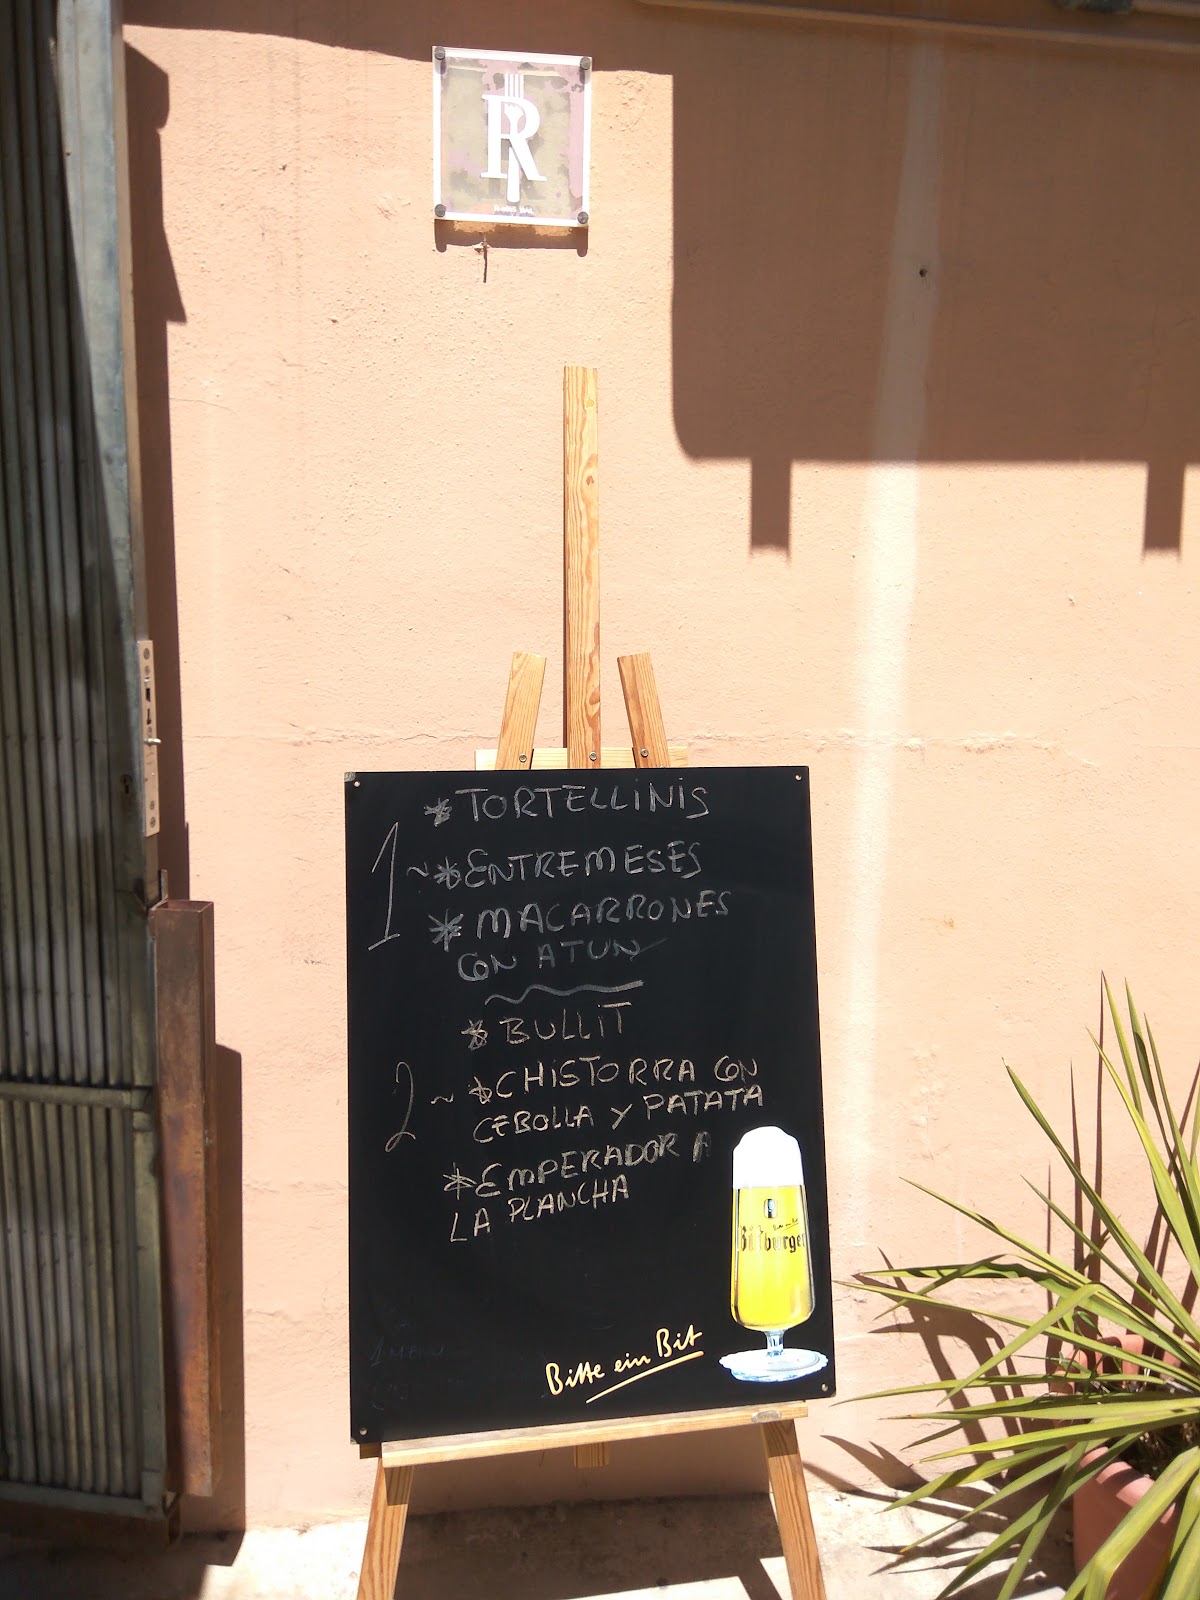 R
* TORTELLINIS
1 ~ * ENTREMESES
* MACARRONES
CON ATUN
* BULLIT
2 ~ * CHISTORRA CON
CEBOLLA Y PATATA
* EMPERADOR A
LA PLANCHA
Bitburger
Bitte ein Bit
1 MENU